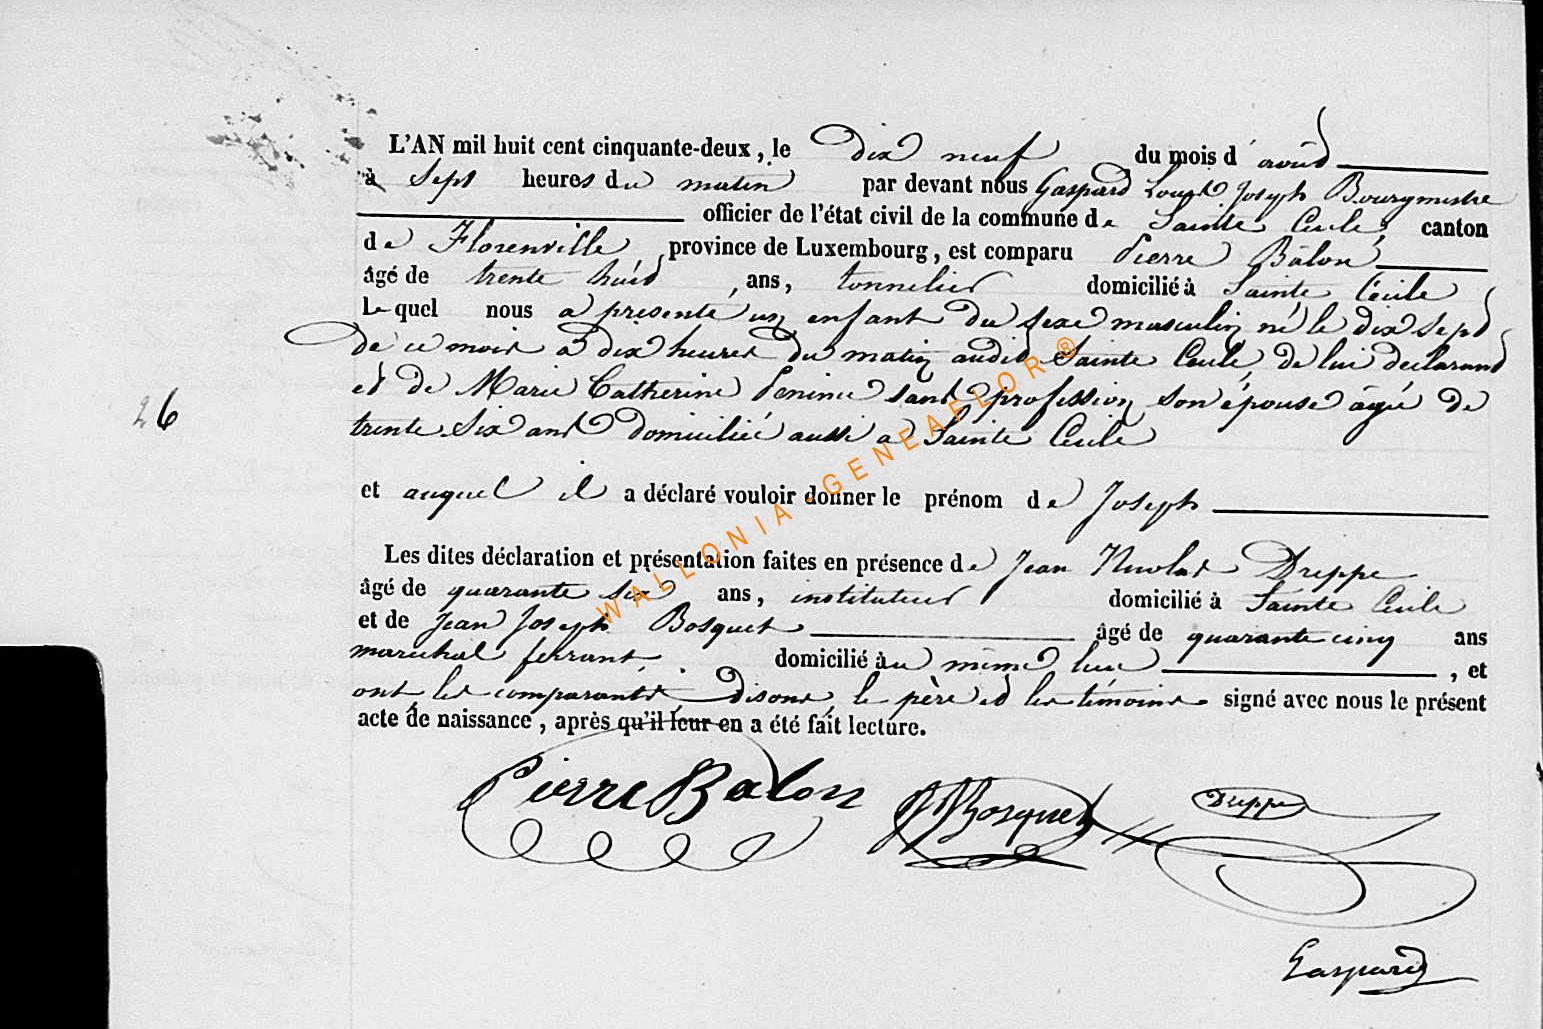 L'AN mil huit cent cinquante-deux, le dix neuf du mois d'août
à Sept heures du matin par devant nous Gaspard Louis Joseph Bourgmestre
officier de l'état civil de la commune de Sainte Cecile, canton
de Florenville, province de Luxembourg, est comparu Pierre Balon
âgé de trente huit, ans, tonnelier domicilié à Sainte Cécile
Lequel nous a présenté un enfant du sexe masculin né le dix sept
de ce mois à dix heures du matin audit Sainte Cecile, de lui déclarant
et de Marie Catherine sans profession son épouse âgée de
26
trente Six ans domiciliée aussi a Sainte Cecile
et auquel il a déclaré vouloir donner le prénom de Joseph
Les dites déclaration et présentation faites en présence de Jean Nicolas Dreppe
âgé de quarante six ans, instituteur domicilié à Sainte Cecile
et de Jean Joseph Bosquet âgé de quarante cinq ans
maréchal ferrant, domicilié au même lieu, et
ont les comparants, disons, le père et les témoins signé avec nous le présent
acte de naissance, après qu'il leur en a été fait lecture.
Pierre Balon JJBosquet Dreppe
Gaspard
WALLONIA-GENEAFLOR®